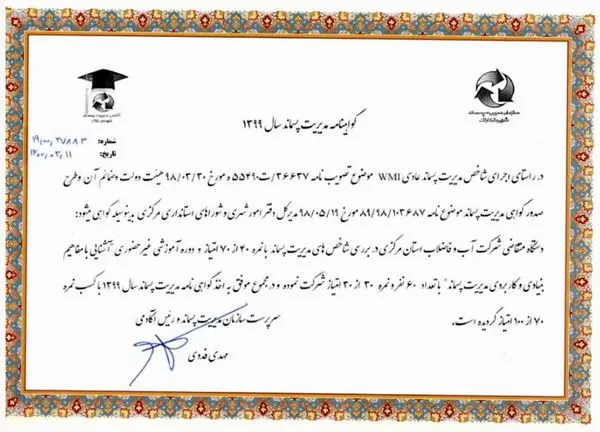 سازمان مدیریت پسماند
شهرداری اراک
گواهینامه مدیریت پسماند سال ۱۳۹۹
شماره:
تاریخ: ۱۴۰۰/۰۲/۱۱
در راستای اجرای شاخص مدیریت پسماند عادی WMI موضوع تصویب نامه ۳۶۶۳۷/ت۵۵۴۹۰ ه مورخ ۹۸/۰۳/۲۰ هیئت دولت و ضمائم آن و طرح
صدور گواهی مدیریت پسماند موضوع نامه ۸۹/۹۸/۱۰۳۶۸۷ مورخ ۹۸/۰۵/۱۹ مدیرکل دفتر امور شهری و شوراهای استانداری مرکزی بدینوسیله گواهی میشود:
دستگاه متقاضی شرکت آب و فاضلاب استان مرکزی در بررسی شاخص های مدیریت پسماند با نمره ۴۰ از ۷۰ امتیاز و دوره آموزشی غیر حضوری "آشنایی با مفاهیم
بنیادی و کاربردی مدیریت پسماند" با تعداد ۶۰ نفر و نمره ۳۰ از ۳۰ امتیاز شرکت نموده و در مجموع موفق به اخذ گواهی نامه مدیریت پسماند سال ۱۳۹۹ با کسب نمره
۷۰ از ۱۰۰ امتیاز گردیده است.
سرپرست سازمان مدیریت پسماند و رئیس آکادمی
مهدی فدوی